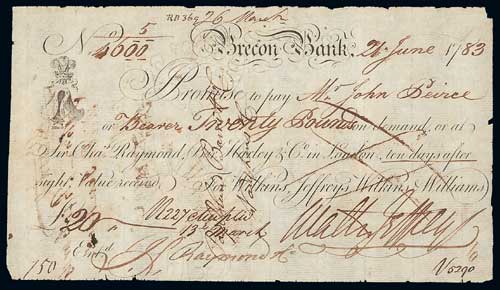 RB369 26 March
5
No 4600 Brecon Bank. 21 June 1783
I Promise to pay Mr. John Peirce
or Bearer Twenty Pounds on demand, or at
Sir Chas. Raymond, Harley & Co. in London, ten days after
sight, Value received. For Wilkins, Jeffreys Wilkins & Williams
£20 N227 Accepted Walter Jeffreys
13th March
Entd. Raymond &
150 V5290